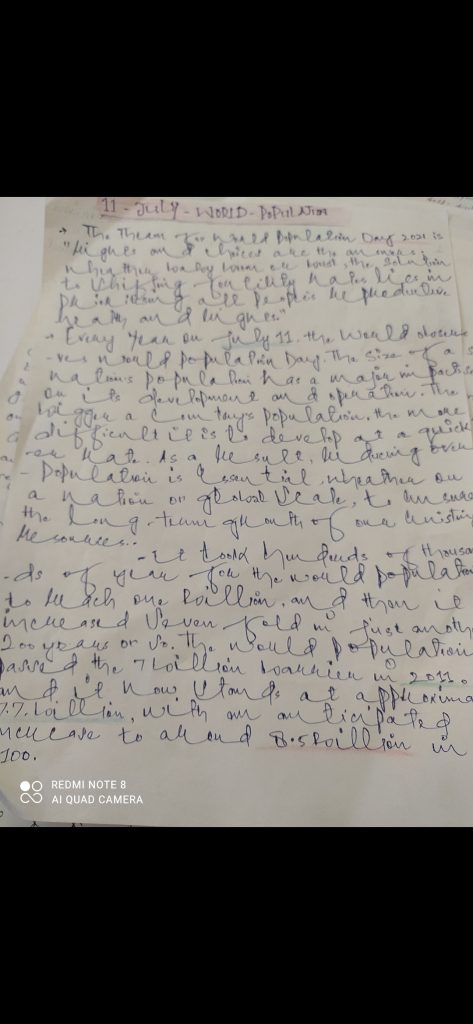 11 - JULY - WORLD - POPULATION
→ The Theam for World Population Day 2021 is
"Rights and choices are the answer:
whether baby boom or bust, the solution
to shifting fertility rates lies in
prioritizing all people's reproductive
health and rights."
→ Every year on July 11, the World observe
-ves world population Day. The size of a
nation's population has a major impact
on its development and operation. The
bigger a country's population, the more
difficult it is to develop at a quick
-er rate. As a result, reducing over
- Population is essential, whether on
a nation or global scale, to ensure
the long-term growth of our existing
resources..
- it took hundreds of thousan
-ds of year for the world population
to reach one billion, and then it
increased seven fold in just anoth
200 years or so. The world population
passed the 7 billion barrier in 2011.
and it now stands at approxima
7.7 billion, with an anticipated
increase to around 8.5 billion in
100.
REDMI NOTE 8
AI QUAD CAMERA